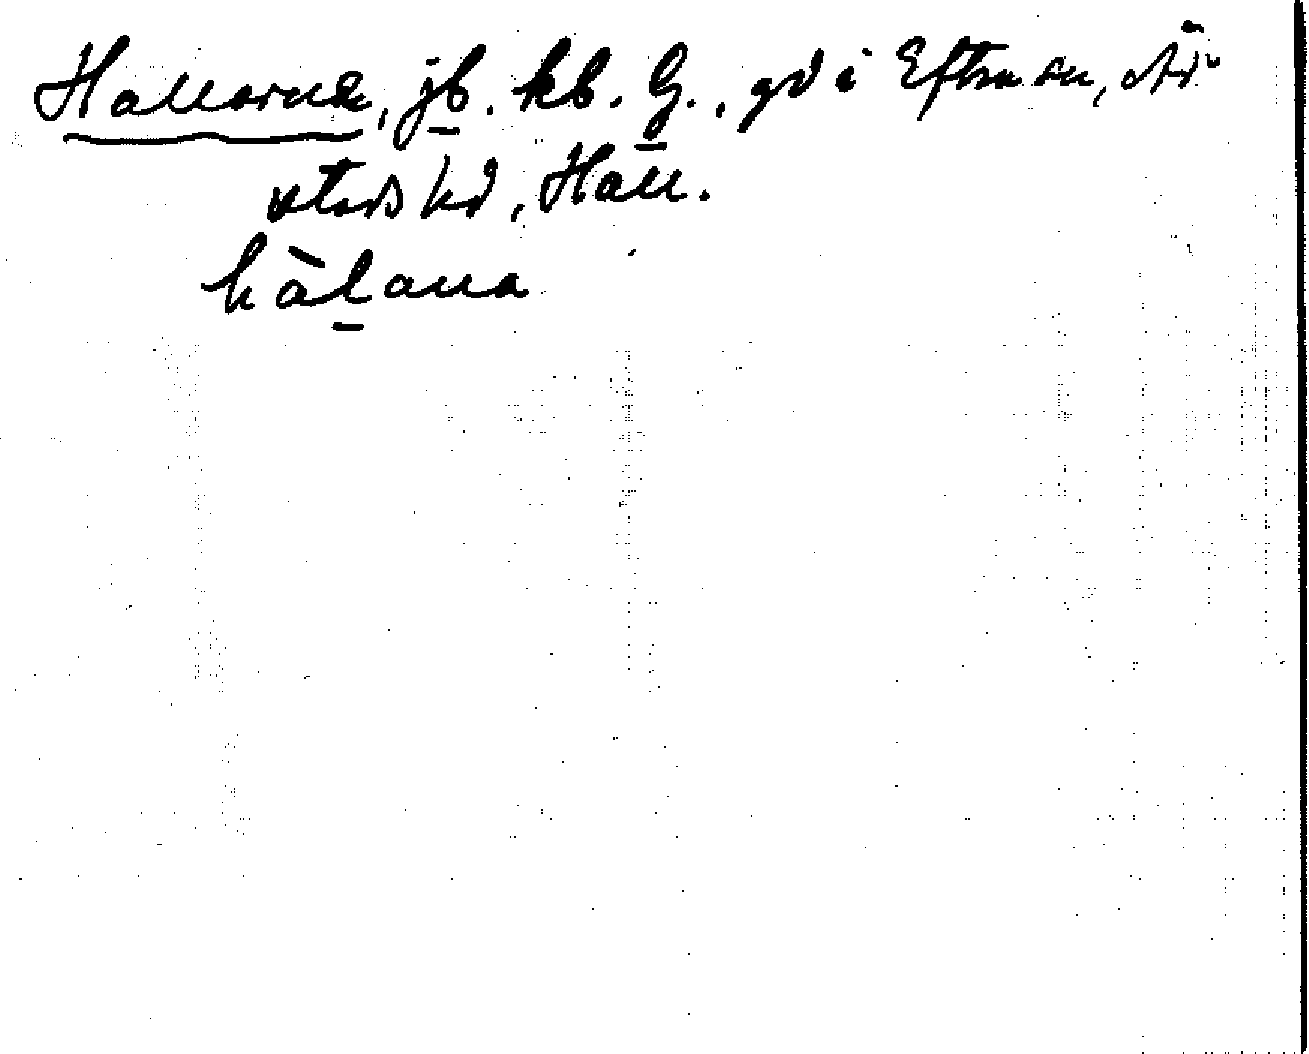 Hallarna, jb. kb. G., gd i Eftra sn, År-
stads hd, Hall.
hàlana